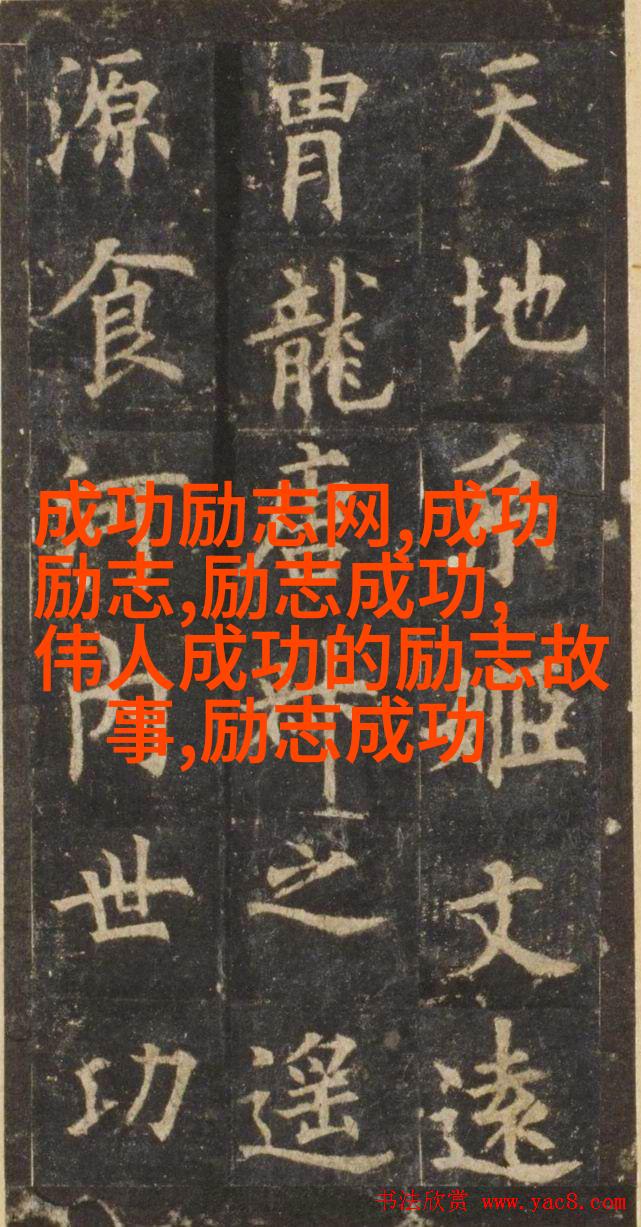 天地系姬文遠
胄龍唐之遥
源食内世功
成功励志网,成功
励志,励志成功,
伟人成功的励志故
事,励志成功
书法欣赏 www.yac8.com